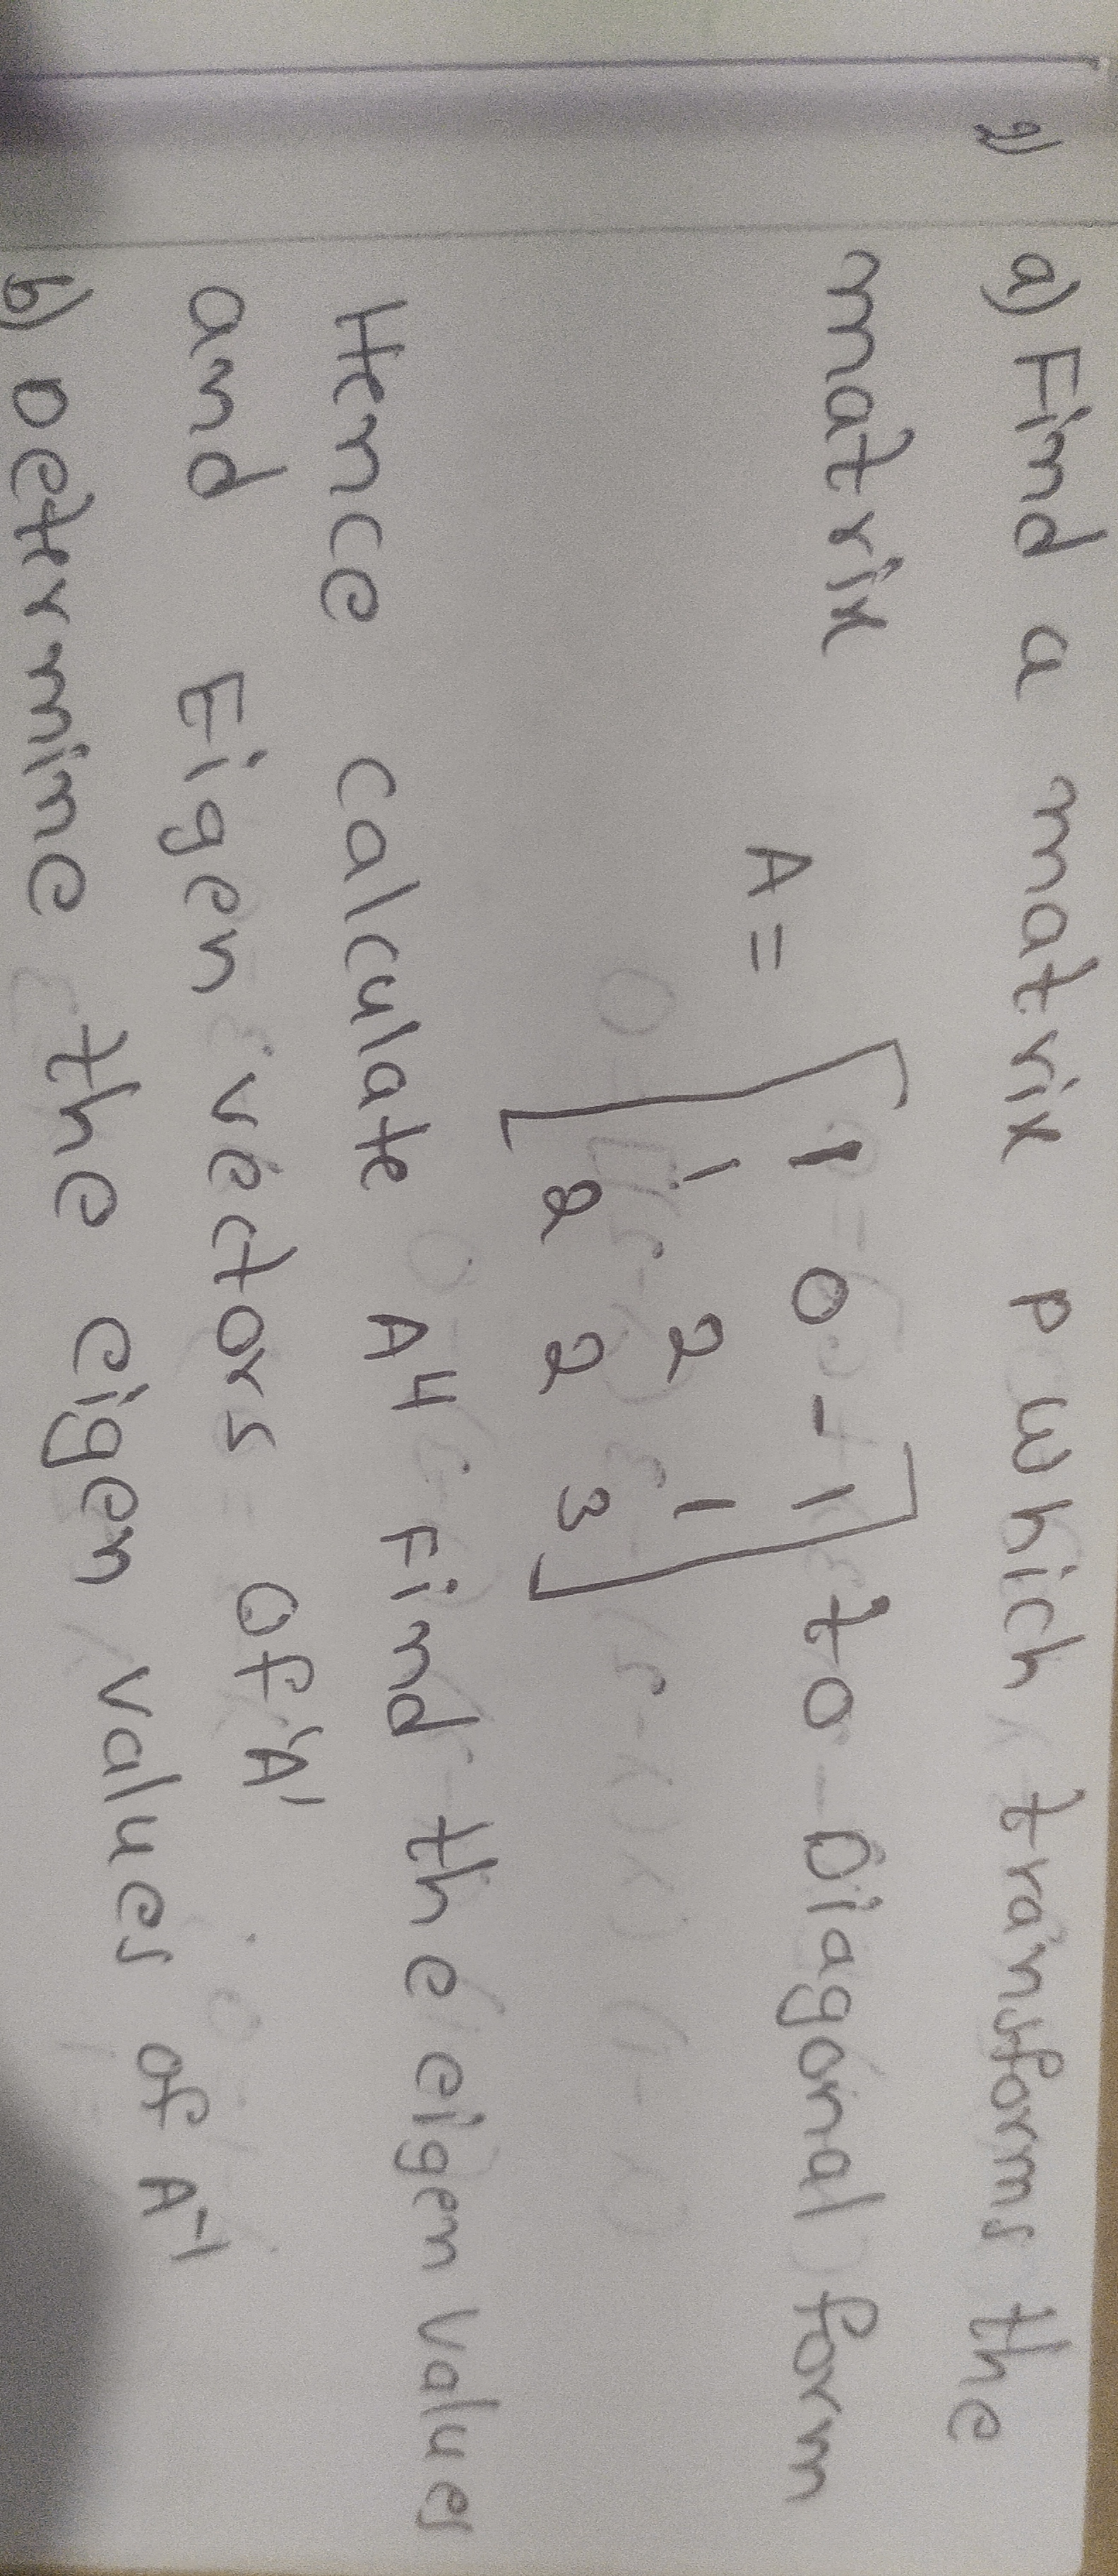 2)
a) Find a matrix P which transforms the
matrix A = [ 1 0 -1 ] to Diagonal form
1 2 1
2 2 3
Hence calculate A4 Find the eigen values
and Eigen vectors of 'A'
b) Determine the eigen values of A-1